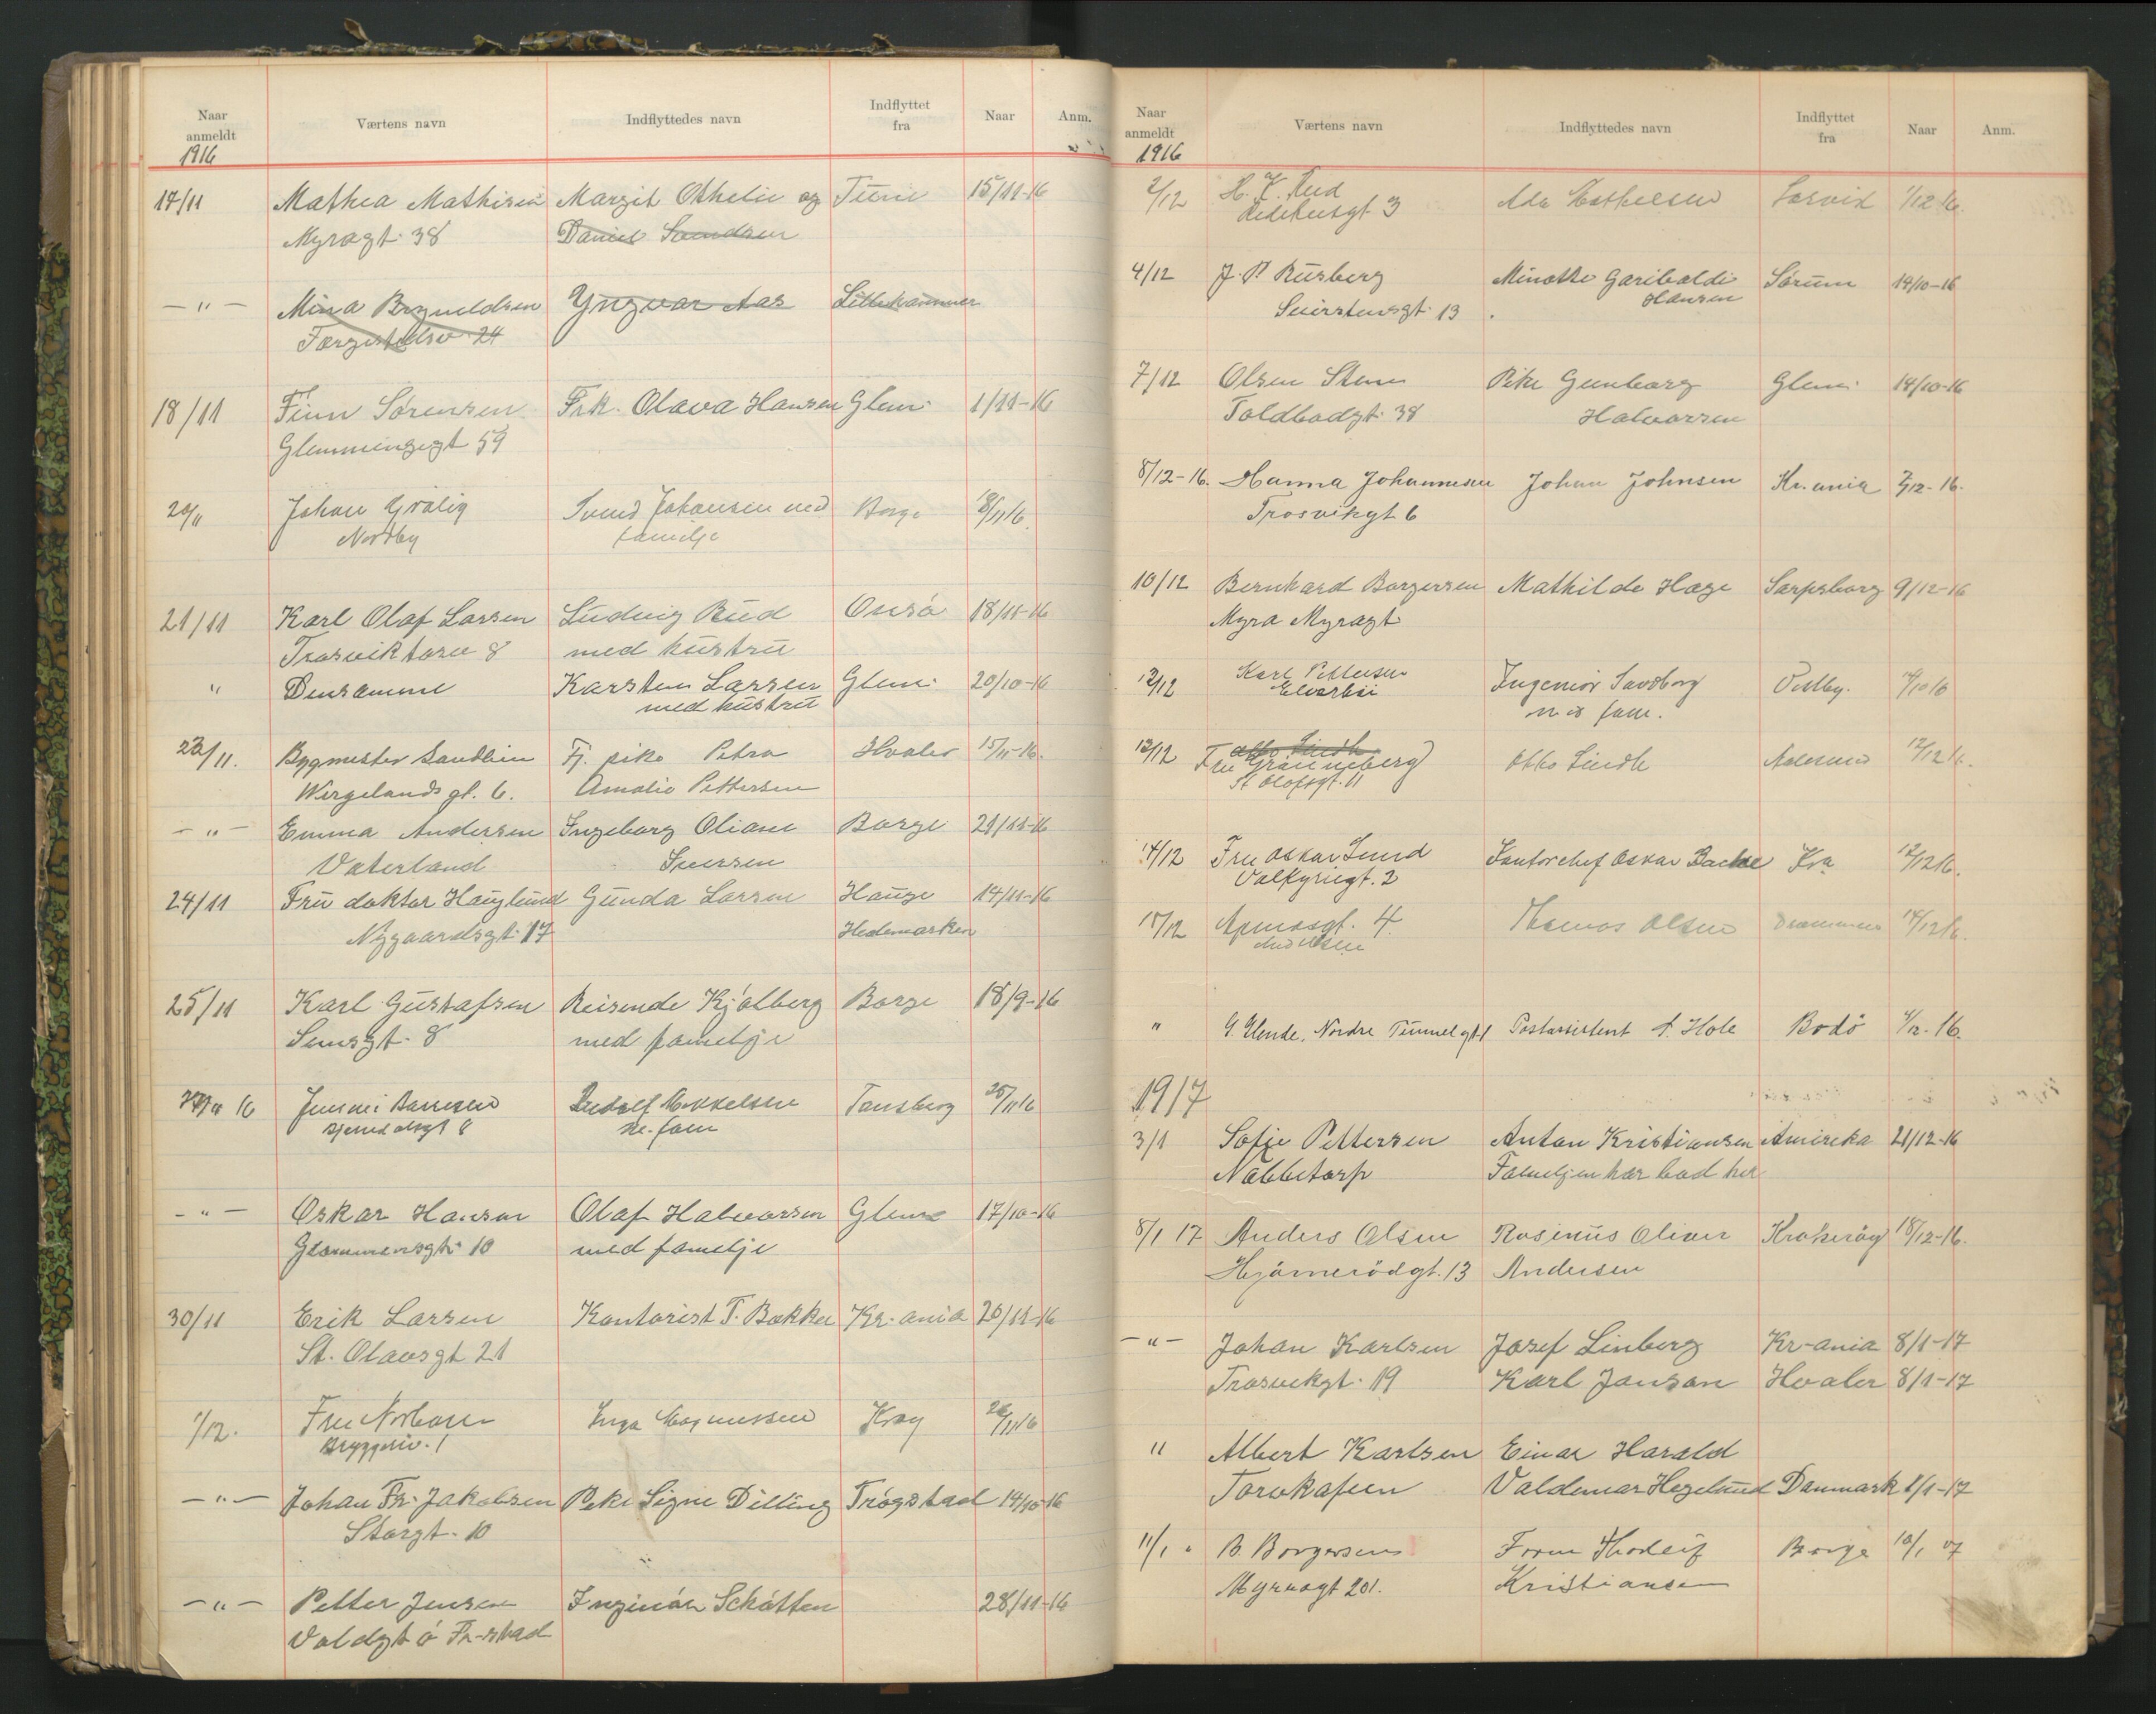 Naar anmeldt Værtens navn Indflyttedes navn Indflyttet fra Naar Anm.
1916
17/11 Mathea Mathisen Margit Othelie og Tune 15/11-16
Myragt. 38 Daniel
-"- Mina Lillehammer
24 Yngvar Aas
18/11 Finn Sørensen Frk. Olava Hansen Glem. 1/11-16
Glemmengegt 59
20/11 Johan Grålig Svend Johansen med Borge 18/11 16
Nordby familje
21/11 Karl Olaf Larsen Ludvig Rud Onsø 18/11-16
Trosviktorv 8 med hustru
" Densamme Karsten Larsen Glem. 20/10-16
med hustru
23/11. Bygmester Sandlien Fj. pike Petra Hvaler 15/11-16.
Wergelandsgt. 6. Amalie Pettersen
-"- Emma Andersen Ingeborg Oliane Borge 21/11-16
Vaterland Iversen
24/11 Fru doktor Hauglund Gunda Larsen Hauge 14/11-16
Nygaardsgt. 17 Hedemarken
25/11 Karl Gustafsen Reisende Kjølberg Borge 18/9-16
8 med familje
16 Rudolf Mikkelsen Tønsberg 25/11 16
fam
-"- Oskar Hansen Olaf Halvorsen Glem 17/10-16
Glommensgt. 10 med familje
30/11 Erik Larsen Kontorist T. Bakke Kr.ania 20/11-16
St. Olavsgt 21
1/12. Fru Inga Magnussen 16
Bryggeriv. 1
-"- Johan Fr. Jakobsen Pike Signe Dilling Trøgstad 14/10-16
Storgt. 10
-"- Petter Jensen Inginiør Schøtten 28/11-16
Voldgt ö Fr-stad
Naar anmeldt Værtens navn Indflyttedes navn Indflyttet fra Naar Anm.
1916
2/12 H. K. Rud Ada 1/12 16.
3
4/12 J. P. Rusberg Minotte Garibaldi Sørum 14/10-16
13 Hansen
7/12 Olsen Pike Gunborg Glem. 14/10-16
Toldbodgt. 38 Halvorsen
8/12-16. Hanna Johannesen Johan Johnsen Kr.ania 7/12-16.
Trosvikgt 6
10/12 Bernhard Borgersen Mathilde Hage Sarpsborg 9/12-16
Myra Myragt.
12/12 Karl Pettersen Ingeniør Sandborg Vestby.
m. fam.
13/12 Otto Lindh
Fru Grønneberg Otto Lindh Aalesund 12/12 16.
St Olofsgt. 11
14/12 Fru Oskar Lund Kontorchef Oskar Backe Kra 12/12 16.
Valkyriegt. 2
15/12 Apenesgt. 4. Thomas Olsen Drammen 14/12 16.
" Nordre Postassistent A. Hole Bodö 4/12-16.
1917
3/1 Sofie Pettersen Anton Kristiansen Amireka 21/12-16
Nabbetorp Familjen har bod her
8/1 17 Anders Olsen Rasinus Oliver Krakerøy 18/12-16.
Hjørnerödgt. 13 Andersen
-"- Johan Karlsen Josef Linberg Kr-ania 8/1-17
Trosvikgt. 19 Karl Janson Hvaler 8/1-17
" Albert Karlsen Einar Harald
Torvkafeen Valdemar Hegelund Danmark 8/1-17
11/1 " B. Borgersen Thorleif Borge 10/1 17
Myragt 201. Kristiansen